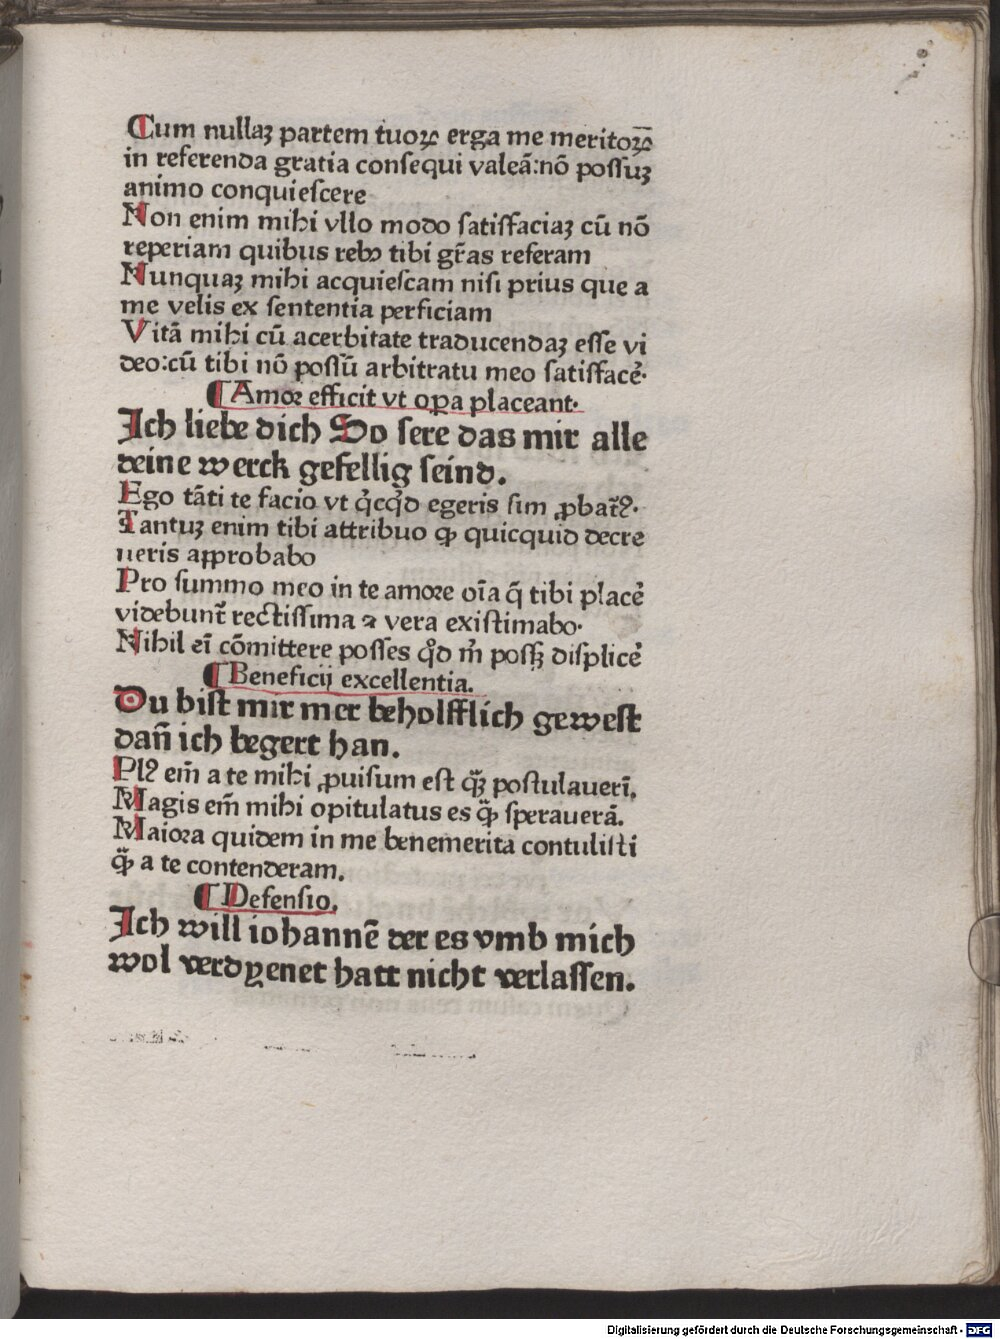 Cum nullaꝫ partem tuoꝝ erga me meritoꝝ
in referenda gratia consequi valeā:nō possuꝫ
animo conquiescere
Non enim mihi vllo modo satisfaciaꝫ cū nō
reperiam quibus rebꝰ tibi gr̄as referam
Nunquaꝫ mihi acquiescam nisi prius que a
me velis ex sententia perficiam
Vitā mihi cū acerbitate traducendaꝫ esse vi
deo:cū tibi nō possū arbitratu meo satisfacē·
¶ Amor efficit vt oꝑa placeant·
Ich liebe dich So sere das mir alle
deine werck gefellig seind.
Ego tāti te facio vt q̇cq̇d egeris sim ꝓbatꝰ·
Tantuꝫ enim tibi attribuo ꝙ quicquid decre
ueris approbabo
Pro summo meo in te amore oīa q̄ tibi placē
videbunt̄ rectissima ⁊ vera existimabo·
Nihil eī cōmittere posses qd̄ m̄ possꝫ displicē
¶ Beneficij excellentia.
Du bist mir mer beholfflich gewest
dañ ich begert han.
Plꝰ em̄ a te mihi ꝓuisum est qꝫ̄ postulauerī.
Magis em̄ mihi opitulatus es ꝙ̄ sperauerā.
Maiora quidem in me benemerita contulisti
ꝙ̄ a te contenderam.
¶ Defensio.
Ich will iohannē der es vmb mich
wol verdyenet hatt nicht verlassen.
Digitalisierung gefördert durch die Deutsche Forschungsgemeinschaft - DFG